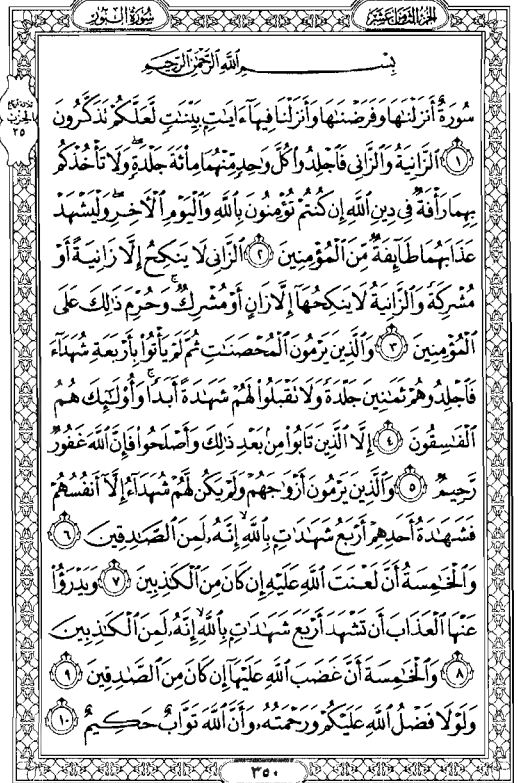 سُورَةُ النُّورِ
الجُزْءُ الثَّامِنَ عَشَرَ
بِسْمِ اللَّهِ الرَّحْمَٰنِ الرَّحِيمِ
سُورَةٌ أَنزَلْنَٰهَا وَفَرَضْنَٰهَا وَأَنزَلْنَا فِيهَآ ءَايَٰتٍۭ بَيِّنَٰتٍ لَّعَلَّكُمْ تَذَكَّرُونَ
﴿١﴾ ٱلزَّانِيَةُ وَٱلزَّانِى فَٱجْلِدُوا۟ كُلَّ وَٰحِدٍ مِّنْهُمَا مِا۟ئَةَ جَلْدَةٍ ۖ وَلَا تَأْخُذْكُم
بِهِمَا رَأْفَةٌ فِى دِينِ ٱللَّهِ إِن كُنتُمْ تُؤْمِنُونَ بِٱللَّهِ وَٱلْيَوْمِ ٱلْـَٔاخِرِ ۖ وَلْيَشْهَدْ
عَذَابَهُمَا طَآئِفَةٌ مِّنَ ٱلْمُؤْمِنِينَ ﴿٢﴾ ٱلزَّانِى لَا يَنكِحُ إِلَّا زَانِيَةً أَوْ
مُشْرِكَةً وَٱلزَّانِيَةُ لَا يَنكِحُهَآ إِلَّا زَانٍ أَوْ مُشْرِكٌ ۚ وَحُرِّمَ ذَٰلِكَ عَلَى
ٱلْمُؤْمِنِينَ ﴿٣﴾ وَٱلَّذِينَ يَرْمُونَ ٱلْمُحْصَنَٰتِ ثُمَّ لَمْ يَأْتُوا۟ بِأَرْبَعَةِ شُهَدَآءَ
فَٱجْلِدُوهُمْ ثَمَٰنِينَ جَلْدَةً وَلَا تَقْبَلُوا۟ لَهُمْ شَهَٰدَةً أَبَدًا ۚ وَأُو۟لَٰٓئِكَ هُمُ
ٱلْفَٰسِقُونَ ﴿٤﴾ إِلَّا ٱلَّذِينَ تَابُوا۟ مِنۢ بَعْدِ ذَٰلِكَ وَأَصْلَحُوا۟ فَإِنَّ ٱللَّهَ غَفُورٌ
رَّحِيمٌ ﴿٥﴾ وَٱلَّذِينَ يَرْمُونَ أَزْوَٰجَهُمْ وَلَمْ يَكُن لَّهُمْ شُهَدَآءُ إِلَّآ أَنفُسُهُمْ
فَشَهَٰدَةُ أَحَدِهِمْ أَرْبَعُ شَهَٰدَٰتٍۭ بِٱللَّهِ ۙ إِنَّهُۥ لَمِنَ ٱلصَّٰدِقِينَ ﴿٦﴾
وَٱلْخَٰمِسَةُ أَنَّ لَعْنَتَ ٱللَّهِ عَلَيْهِ إِن كَانَ مِنَ ٱلْكَٰذِبِينَ ﴿٧﴾ وَيَدْرَؤُا۟
عَنْهَا ٱلْعَذَابَ أَن تَشْهَدَ أَرْبَعَ شَهَٰدَٰتٍۭ بِٱللَّهِ ۙ إِنَّهُۥ لَمِنَ ٱلْكَٰذِبِينَ
﴿٨﴾ وَٱلْخَٰمِسَةَ أَنَّ غَضَبَ ٱللَّهِ عَلَيْهَآ إِن كَانَ مِنَ ٱلصَّٰدِقِينَ ﴿٩﴾
وَلَوْلَا فَضْلُ ٱللَّهِ عَلَيْكُمْ وَرَحْمَتُهُۥ وَأَنَّ ٱللَّهَ تَوَّابٌ حَكِيمٌ ﴿١٠﴾
الحزب
٣٥
٣٥٠